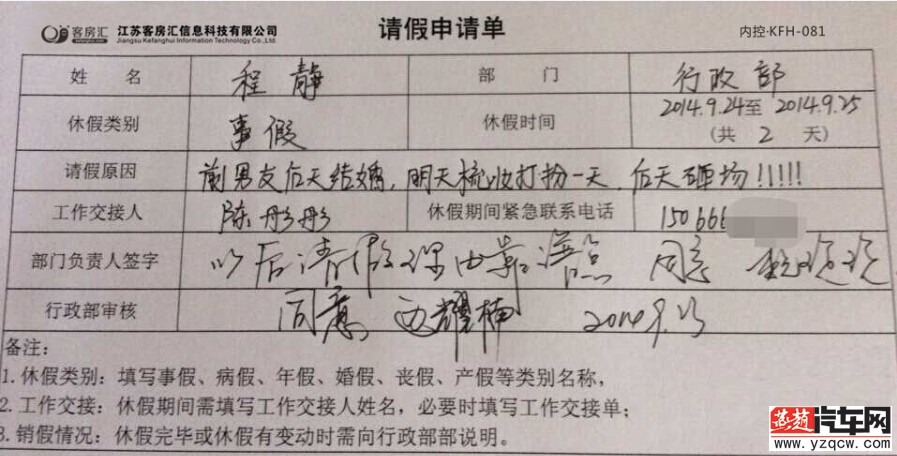 客房汇 江苏客房汇信息科技有限公司 请假申请单 内控·KFH-081
Jiangsu Kefanghui Information Technology Co., Ltd.
姓 名 程静 部 门 行政部
休假类别 事假 休假时间 2014.9.24至 2014.9.25
(共 2 天)
请假原因 前男友后天结婚,明天梳妆打扮一天,后天砸场!!!!!
工作交接人 陈彤彤 休假期间紧急联系电话 150666
部门负责人签字 以后请假理由靠谱点 同意
行政部审核 同意 耀楠 2014.9.23
备注:
1.休假类别:填写事假、病假、年假、婚假、丧假、产假等类别名称,
2.工作交接:休假期间需填写工作交接人姓名,必要时填写工作交接单;
3.销假情况:休假完毕或休假有变动时需向行政部部说明。
蒸趟汽车网
www.yzqcw.com